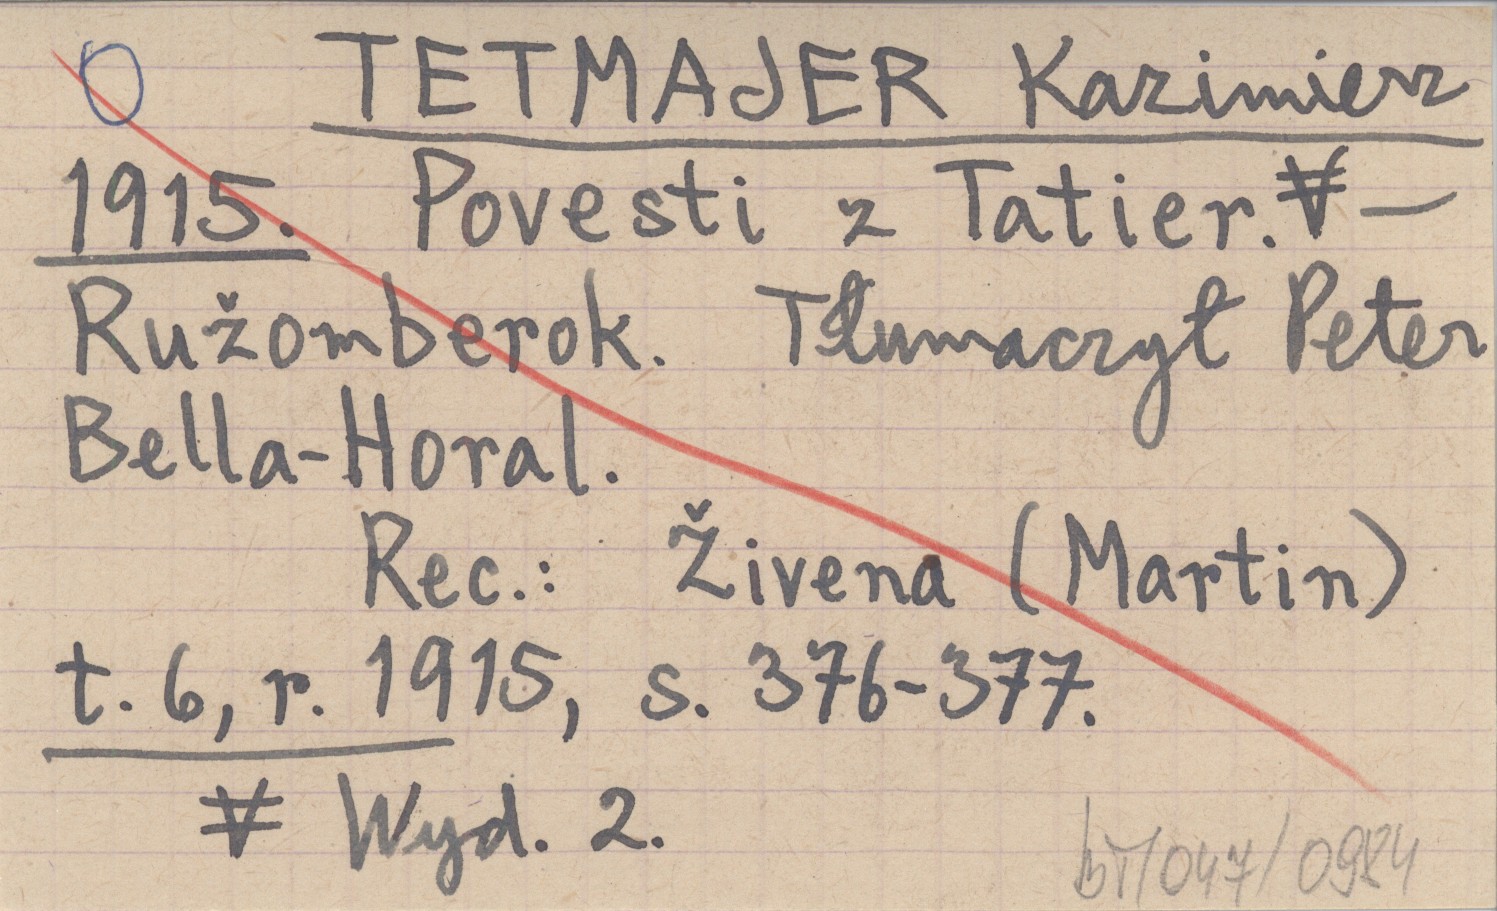 O TETMAJER Kazimierz
1915. Povesti z Tatier. ∀ —
Ružomberok. Tłumaczył Peter
Bella-Horal.
Rec.: Živena (Martin)
t. 6, r. 1915, s. 376-377.
∀ Wyd. 2.
bT/047/0984